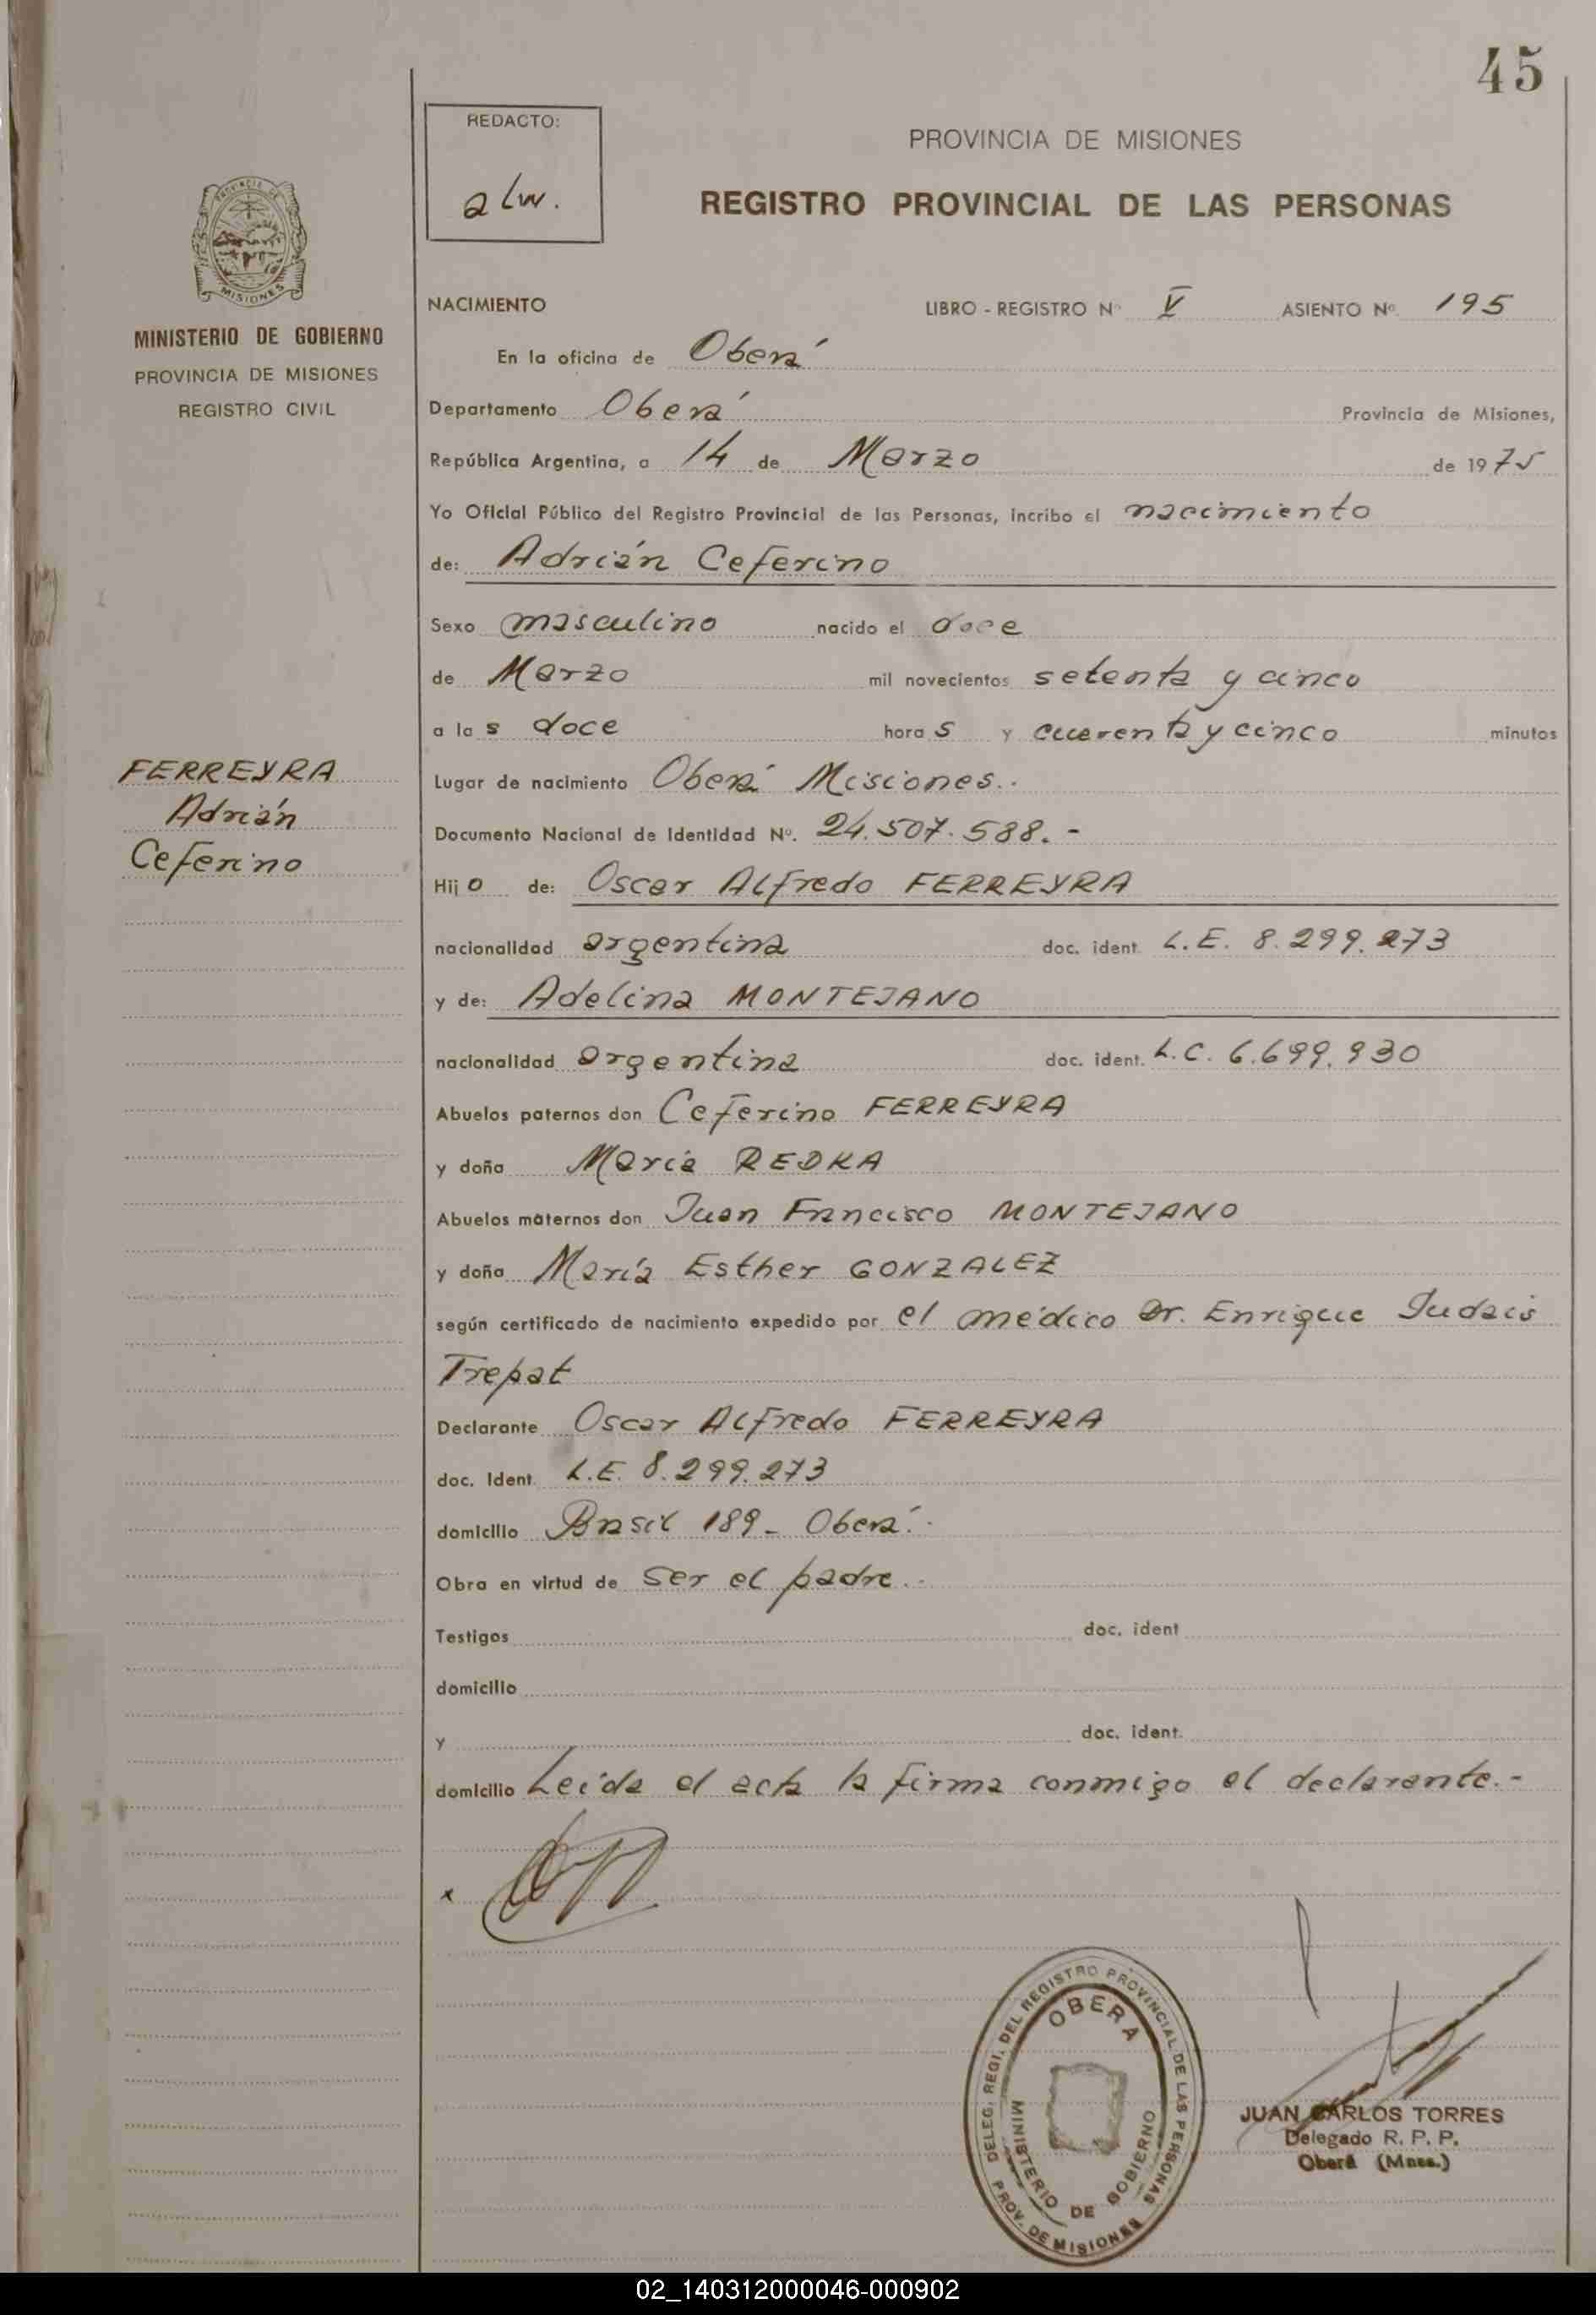 45
REDACTO:
alw.
PROVINCIA DE MISIONES
REGISTRO PROVINCIAL DE LAS PERSONAS
PROVINCIA DE
MISIONES
MINISTERIO DE GOBIERNO
PROVINCIA DE MISIONES
REGISTRO CIVIL
FERREYRA
Adrián
Ceferino
NACIMIENTO LIBRO - REGISTRO Nº V ASIENTO Nº 195
En la oficina de Oberá
Departamento Oberá Provincia de Misiones,
República Argentina, a 14 de Marzo de 1975
Yo Oficial Público del Registro Provincial de las Personas, incribo el nacimiento
de: Adrián Ceferino
Sexo masculino nacido el doce
de Marzo mil novecientos setenta y cinco
a las doce horas y cuarenta y cinco minutos
Lugar de nacimiento Oberá Misiones.-
Documento Nacional de Identidad Nº. 24.507.588.-
Hijo de: Oscar Alfredo FERREYRA
nacionalidad argentina doc. ident. L.E. 8.299.273
y de: Adelina MONTEJANO
nacionalidad argentina doc. ident. L.C. 6.699.930
Abuelos paternos don Ceferino FERREYRA
y doña María REDKA
Abuelos maternos don Juan Francisco MONTEJANO
y doña María Esther GONZALEZ
según certificado de nacimiento expedido por el médico Dr. Enrique Judais
Trepat
Declarante Oscar Alfredo FERREYRA
doc. Ident. L.E. 8.299.273
domicilio Brasil 189 - Oberá.-
Obra en virtud de ser el padre.-
Testigos doc. ident
domicilio
y doc. ident.
domicilio Leída el acta la firma conmigo el declarante.-
x
DELEG. REGI. DEL REGISTRO PROVINCIAL DE LAS PERSONAS
OBERA
MINISTERIO DE GOBIERNO
PROV. DE MISIONES
JUAN CARLOS TORRES
Delegado R. P. P.
Oberá (Mnes.)
02_140312000046-000902